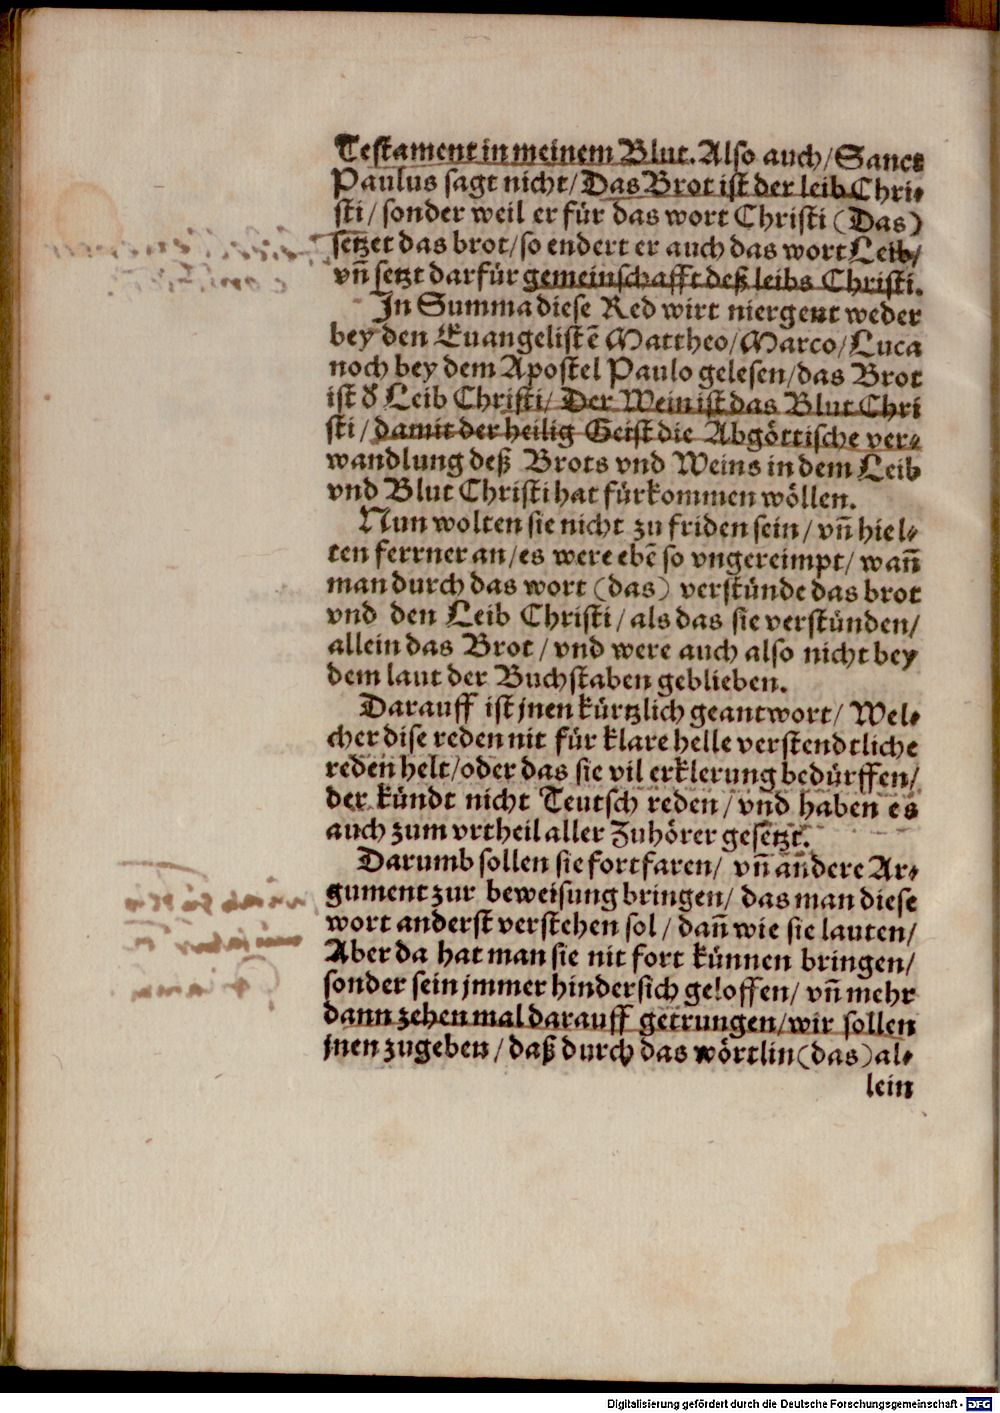 Testament in meinem Blut. Also auch/ Sanct
Paulus sagt nicht/ Das Brot ist der leib Chri-
sti/ sonder weil er für das wort Christi (Das)
setzet das brot/ so endert er auch das wort Leib/
vñ setzt darfür gemeinschafft deß leibs Christi.
In Summa diese Red wirt niergent weder
bey den Euangelistẽ Mattheo/ Marco/ Luca
noch bey dem Apostel Paulo gelesen/ das Brot
ist d Leib Christi/ Der Wein ist das Blut Chri
sti/ damit der heilig Geist die Abgöttische ver-
wandlung deß Brots vnd Weins in dem Leib
vnd Blut Christi hat fürkommen wöllen.
Nun wolten sie nicht zu friden sein/ vñ hiel-
ten ferrner an/ es were ebẽ so vngereimpt/ wañ
man durch das wort (das) verstünde das brot
vnd den Leib Christi/ als das sie verstünden/
allein das Brot/ vnd were auch also nicht bey
dem laut der Buchstaben geblieben.
Darauff ist jnen kürtzlich geantwort/ Wel-
cher dise reden nit für klare helle verstendtliche
reden helt/ oder das sie vil erklerung bedürffen/
der kündt nicht Teutsch reden/ vnd haben es
auch zum vrtheil aller Zuhörer gesetzt.
Darumb sollen sie fortfaren/ vñ andere Ar-
gument zur beweisung bringen/ das man diese
wort anderst verstehen sol/ dañ wie sie lauten/
Aber da hat man sie nit fort künnen bringen/
sonder sein jmmer hindersich geloffen/ vñ mehr
dann zehen mal darauff getrungen/ wir sollen
jnen zugeben/ daß durch das wörtlin (das) al-
lein
Digitalisierung gefördert durch die Deutsche Forschungsgemeinschaft - DFG